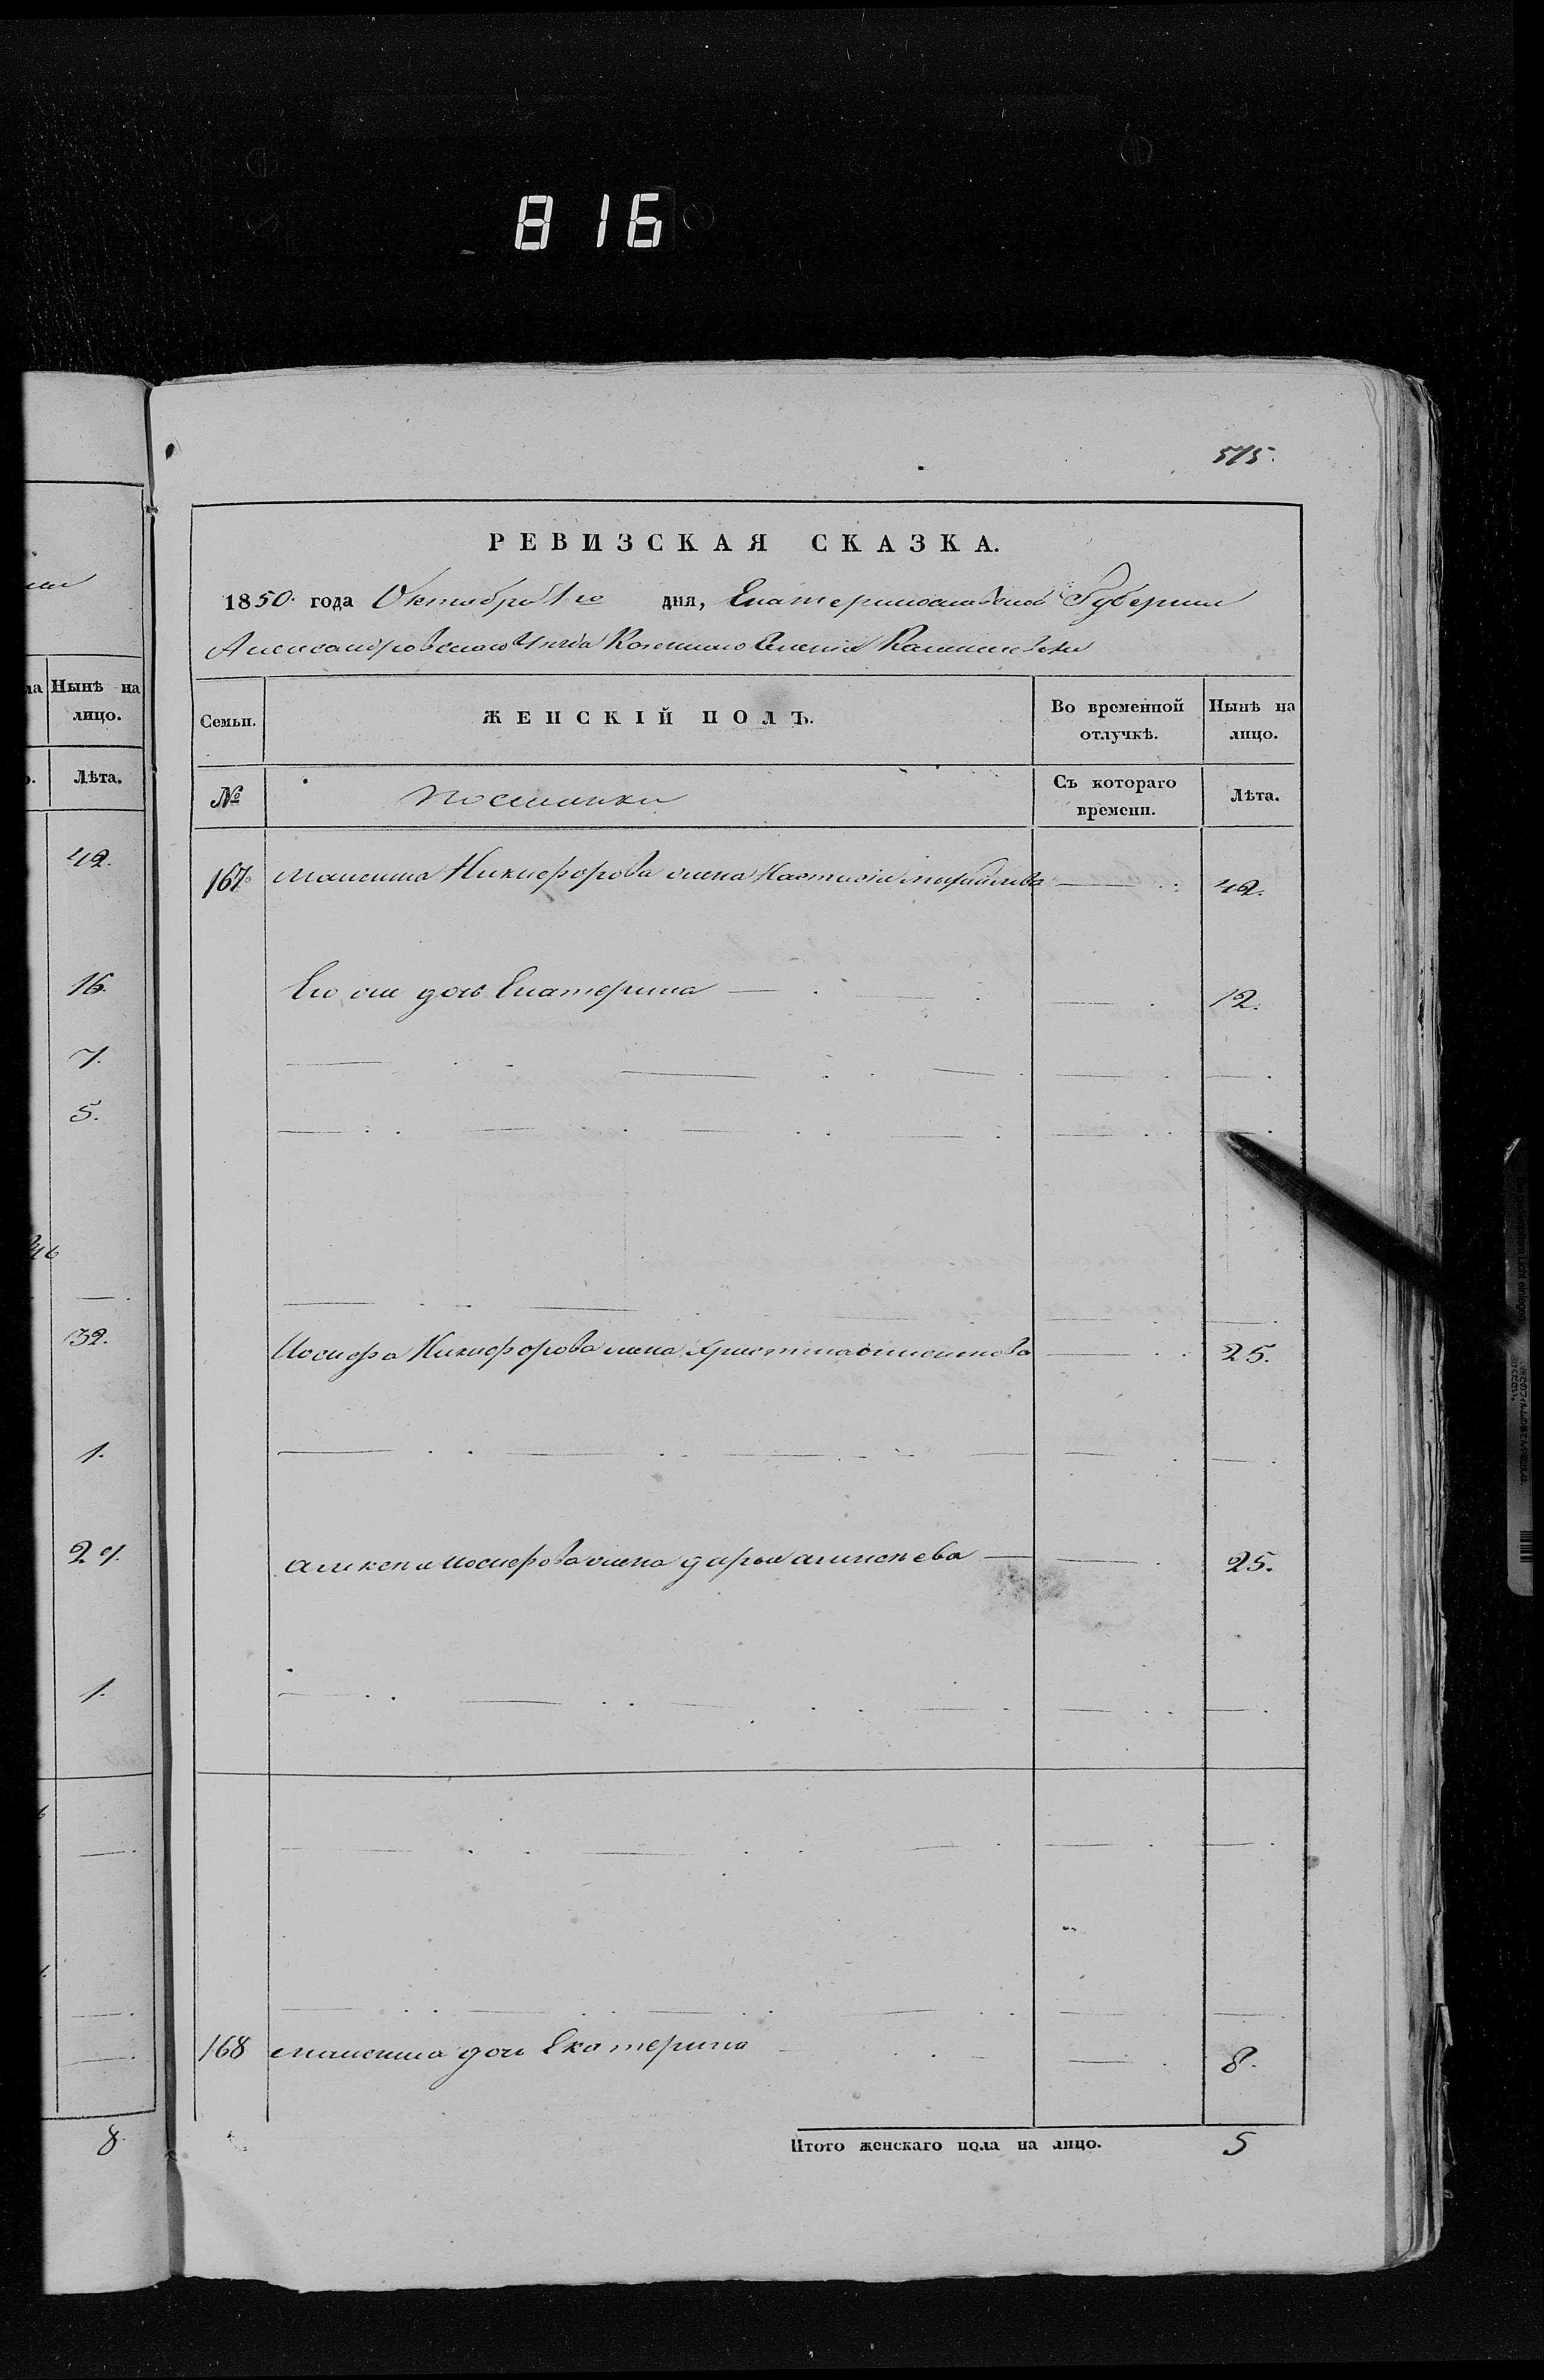 816
515.
РЕВИЗСКАЯ СКАЗКА.
1850. года Октября 1го дня, Екатеринославской Губернии
Александровского Уезда Казенного Селения
Семьи.
ЖЕНСКІЙ ПОЛЪ.
Во временной отлучкѣ.
Нынѣ на лицо.
№
Поселянки
Съ котораго времени.
Лѣта.
167. Максима Никифорова жена Настасия Михайлова 42.
Его же дочь Екатерина 12.
Иосифа Никифорова жена Христина 25.
Алексея Иосифова жена Дарья Алексеева 25.
168 Максима дочь Екатерина 8.
Итого женскаго пола на лицо. 5
Нынѣ на
лицо.
Лѣта.
42.
16.
7.
5.
32.
1.
27.
1.
8